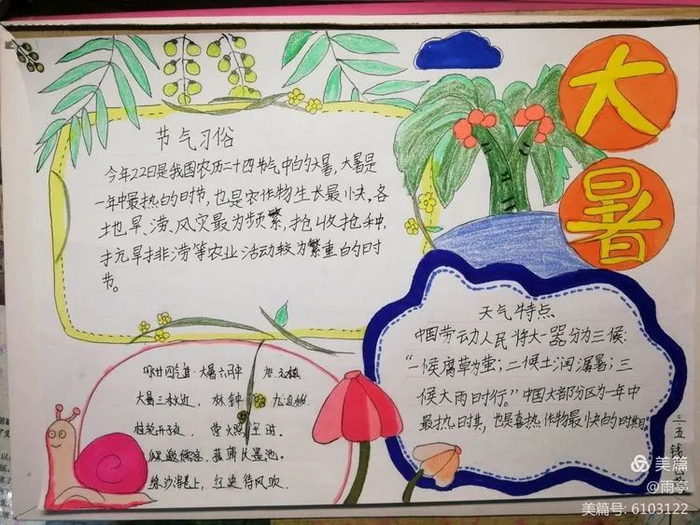 大暑
节气习俗
今年22日是我国农历二十四节气中的大暑,大暑是
一年中最热的时节,也是农作物生长最快,各
地旱、涝、风灾最为频繁,抢收抢种,
抗旱排涝等农业活动较为繁重的时
节。
天气特点
中国劳动人民将大暑分为三候:
“一候腐草为萤;二候土润溽暑;三
候大雨时行。”中国大部分区为一年中
最热时期,也是喜热作物最快的时期
大暑三秋近,林钟九
桂轮开子夜,萤火照
菰蒲长墨池。
绛纱浮
二五钱
美篇
@雨亭
美篇号: 6103122